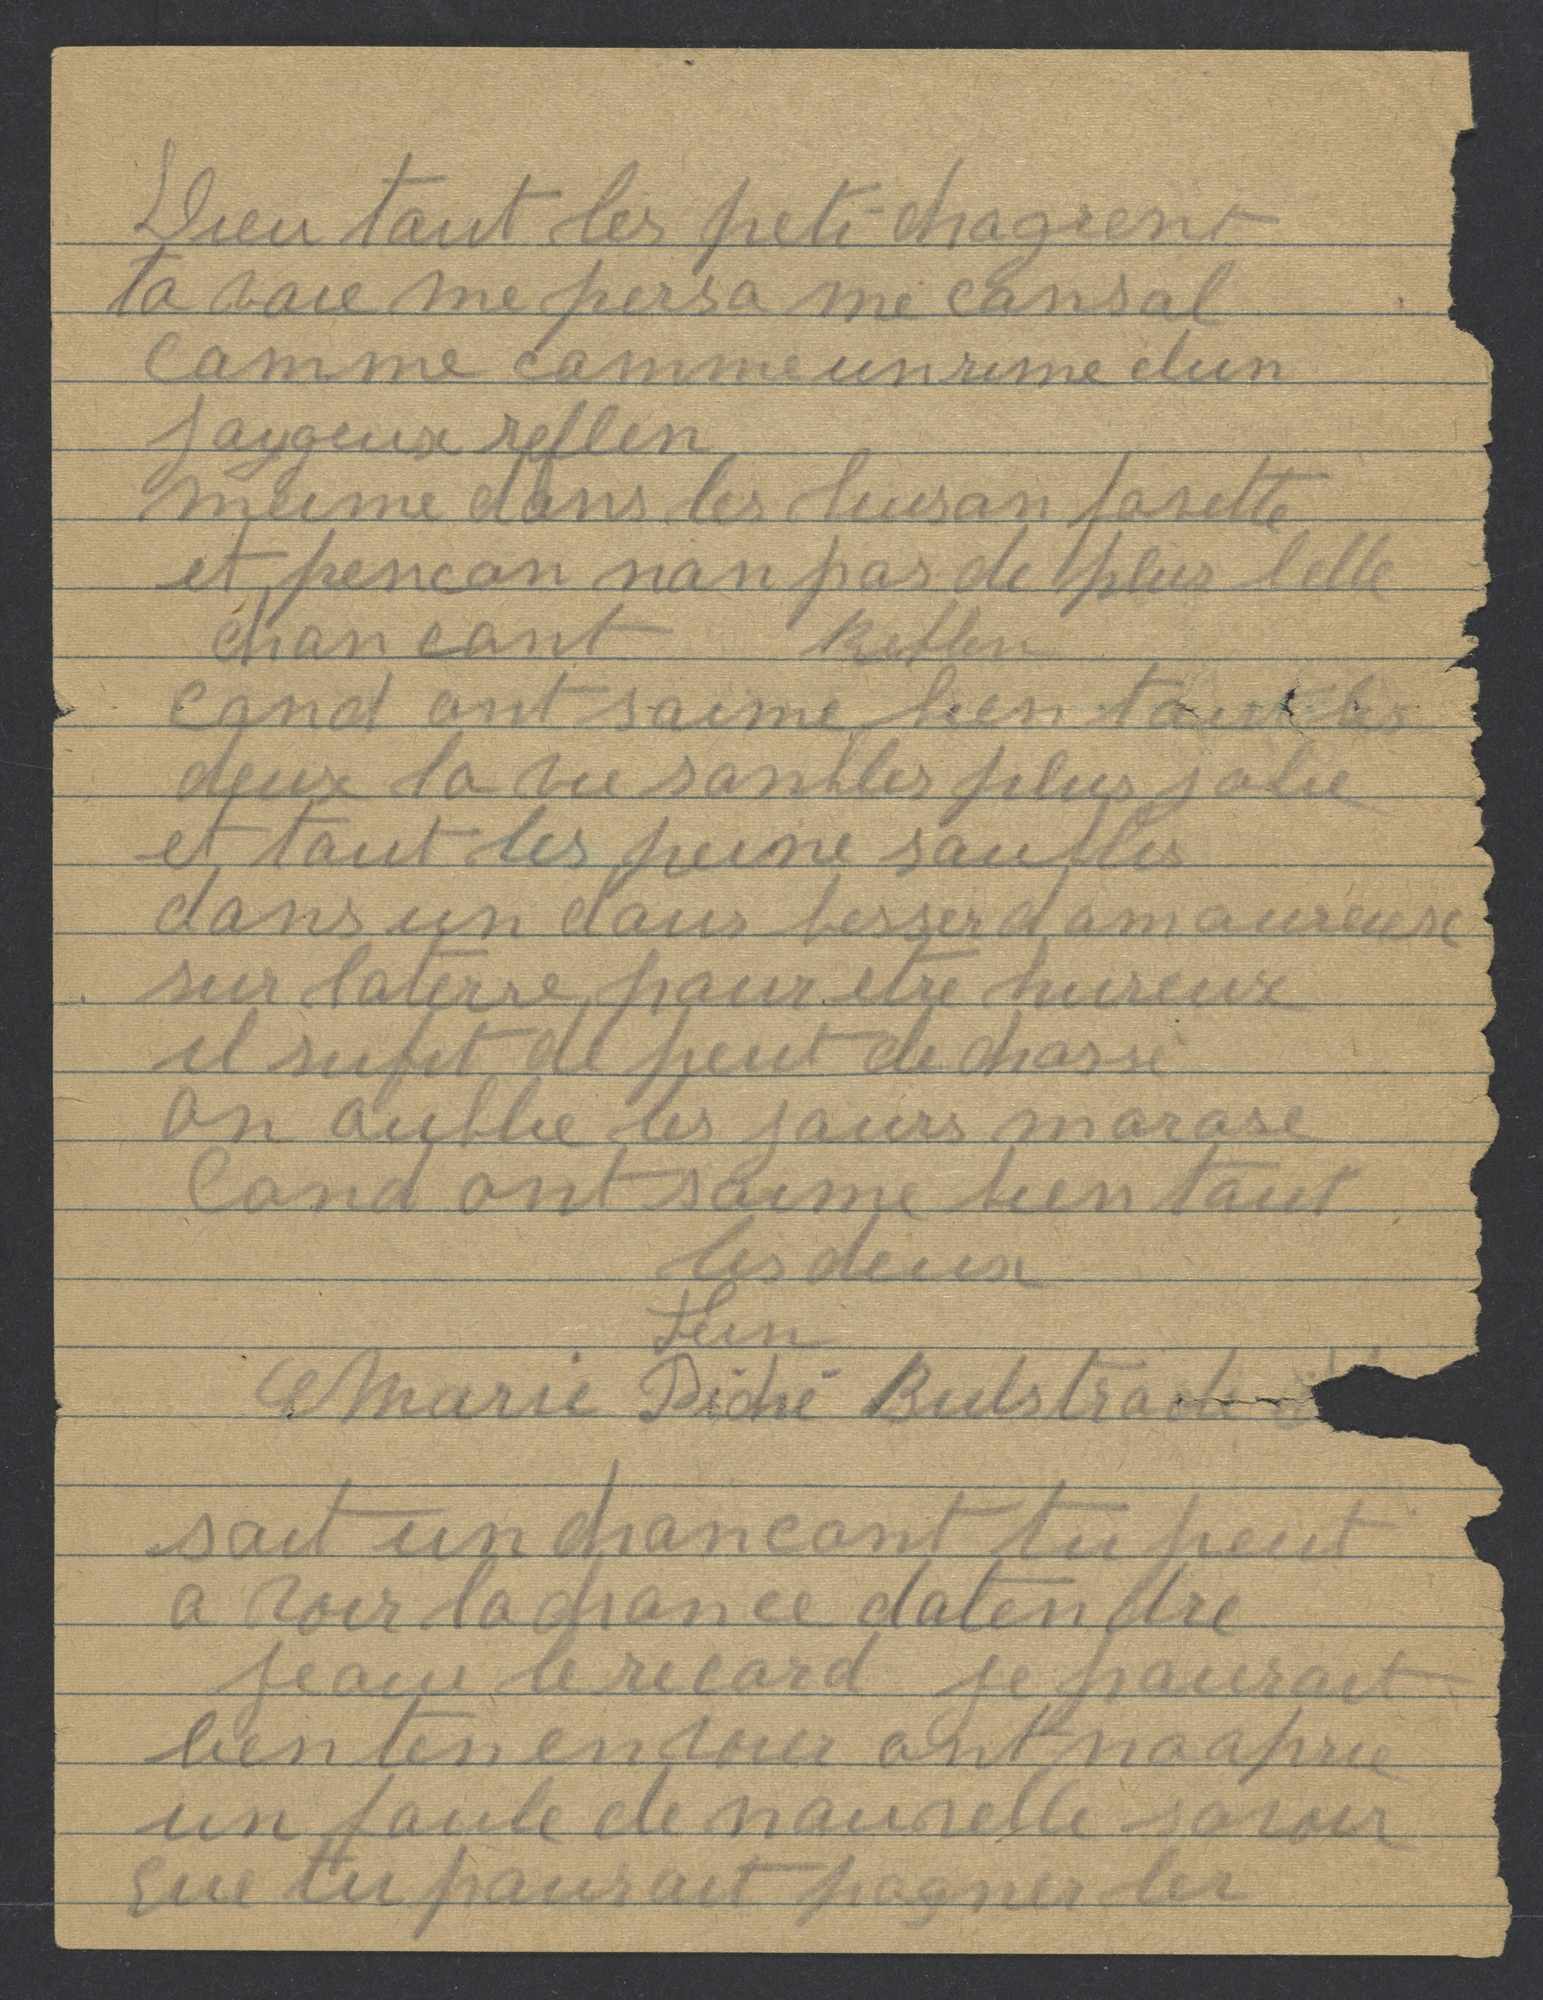 Dieu tout les peti chagrent
ta voie me persa me consol
comme comme un rime dun
joygeux reflen
meime dans les buisan fosette
et pencon nan pas de plus belle
chancont Reflen
cond ont saime bien tout les
deux la vie sanbles plus jolie
et tout les peine soublis
dans un doux besser damoureux
sur laterre pour etre hureux
il sufit de peut de chosse
on oublie les jours morose
Cond ont saime bien tout
les deux
Fin
Marie Piché Bulstrode
sait un chancont tu peut
a voir la chance datendre
jeoue le record je pourait
bien ten envoier ont na aprie
un foule de nouvelle savoir
que tu pourait pogner les